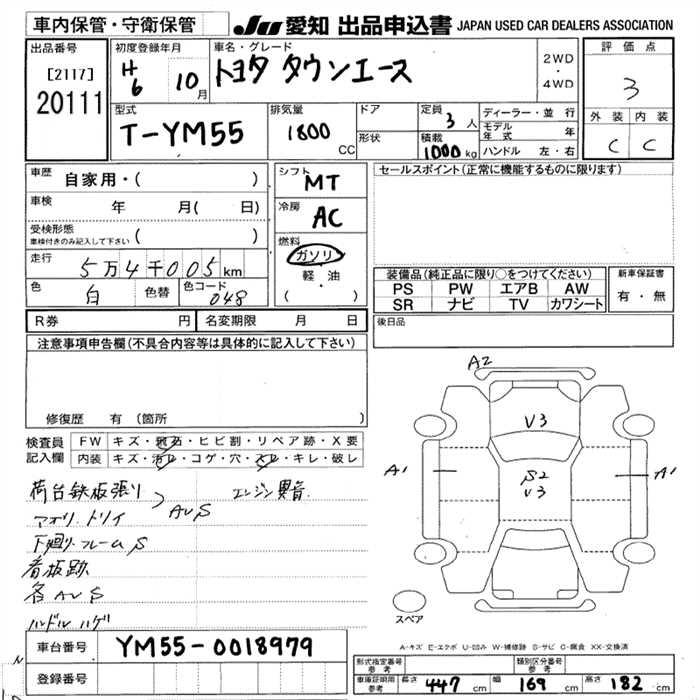 車内保管・守衛保管
JU 愛知 出品申込書 JAPAN USED CAR DEALERS ASSOCIATION
出品番号
[2117]
20111
初度登録年月
H6 10月
車名・グレード
トヨタ タウンエース
2WD
・
4WD
評価点
3
外装 内装
C C
型式
T-YM55
排気量
1800
CC
ドア
形状
定員 3人
積載 1000kg
ディーラー・並行
モデル年式 年
ハンドル 左・右
車歴
自家用・( )
車検 年 月( 日)
受検形態
車検付きのみ記入して下さい ( )
走行
5万4千005km
色 白 色替 色コード 048
シフト
MT
冷房
AC
燃料
ガソリン
軽・油
( )
セールスポイント(正常に機能するものに限ります)
装備品(純正品に限り○をつけてください)
PS PW エアB AW
SR ナビ TV カワシート
新車保証書
有・無
R券 円 名変期限 月 日
後日品
注意事項申告欄(不具合内容等は具体的に記入して下さい)
修復歴 有(箇所 )
検査員
記入欄
FW キズ・飛石・ヒビ割・リペア跡・X要
内装 キズ・汚れ・コゲ・穴・スレ・キレ・破レ
荷台鉄板張り
アオリ、トリイ AUS
エンジン異音
下廻り・フレームS
看板跡
各AUS
ハンドルハゲ
A2
V3
A1
S2
V3
A1
スペア
A-キズ E-エクボ U-凹み W-補修跡 S-サビ C-腐食 XX-交換済
車台番号 YM55-0018979
登録番号
形式指定番号
参考
類別区分番号
参考
車庫証明用
参考
長さ 447 cm 幅 169 cm 高さ 182 cm